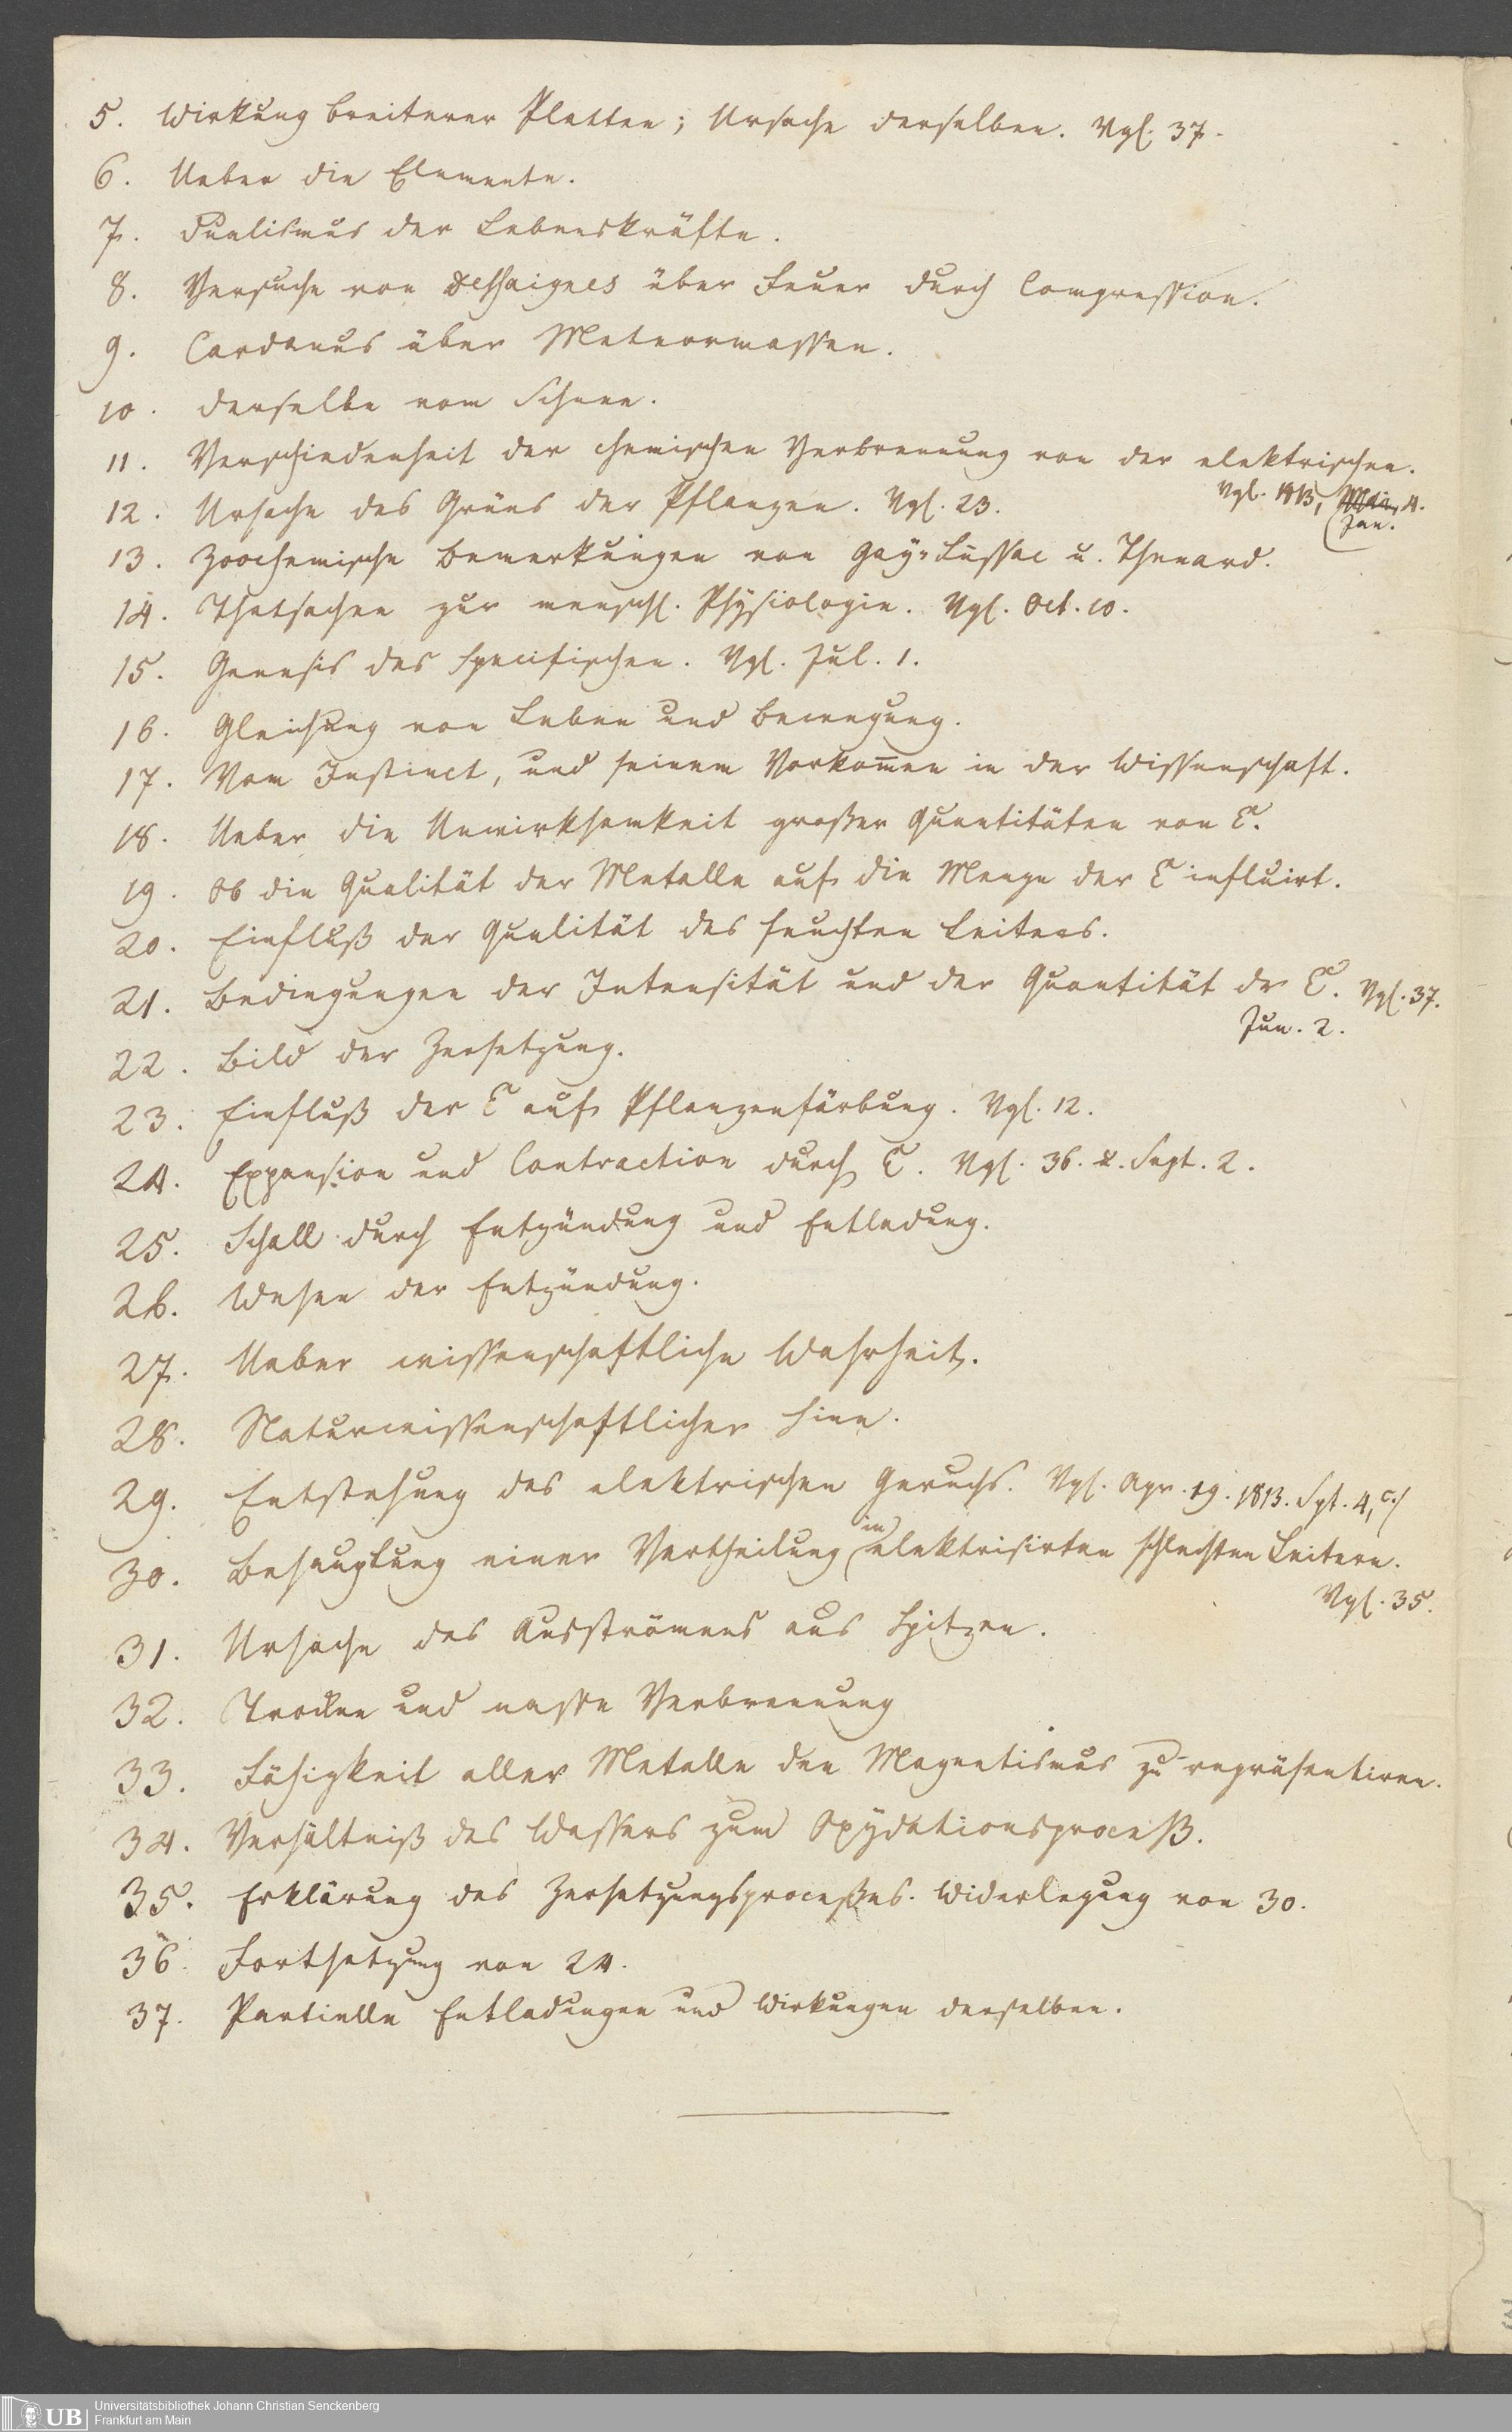 5. Wirkung breiterer Platten; Ursache derselben. Vgl. 37.
6. Ueber die Elemente.
7. Dualismus der Lebenskräfte.
8. Versuche von Dessaignes über Feuer durch Compression.
9. Cardanus über Meteormassen.
10. Derselbe vom Schnee.
11. Verschiedenheit der chemischen Verbrennung von der elektrischen.
Vgl. 1813, Jan. 4.
12. Ursache des Grüns der Pflanzen. Vgl. 23.
13. Zoochemische Bemerkungen von Gay-Lussac u. Thenard.
14. Thatsachen zur menschl. Physiologie. Vgl. Oct. 10.
15. Genesis des Specifischen. Vgl. Jul. 1.
16. Gleichung von Leben und Bewegung.
17. Vom Instinct, und seinem Vorkom̄en in der Wissenschaft.
18. Ueber die Unwirksamkeit großer Quantitäten von E.
19. Ob die Qualität der Metalle auf die Menge der E influirt.
20. Einfluß der Qualität des feuchten Leiters.
21. Bedingungen der Intensität und der Quantität der E. Vgl. 37.
Jun. 2.
22. Bild der Zersetzung.
23. Einfluß der E auf Pflanzenfärbung. Vgl. 12.
24. Expansion und Contraction durch E. Vgl. 36. u. Sept. 2.
25. Schall durch Entzündung und Entladung.
26. Wesen der Entzündung.
27. Ueber wissenschaftliche Wahrheit.
28. Naturwissenschaftlicher Sinn.
29. Entstehung des elektrischen Geruchs. Vgl. Apr. 19. 1813. Spt. 4, c.)
30. Behauptung einer Vertheilung in elektrisirten schlechten Leitern.
Vgl. 35.
31. Ursache des Ausströmens aus Spitzen.
32. Trockne und nasse Verbrennung
33. Fähigkeit aller Metalle den Magnetismus zu repräsentiren.
34. Verhältniß des Wassers zum Oxydationsproceß.
35. Erklärung des Zersetzungsprocesses. Widerlegung von 30.
36. Fortsetzung von 24.
37. Partielle Entladungen und Wirkungen derselben.
UB
Universitätsbibliothek Johann Christian Senckenberg
Frankfurt am Main